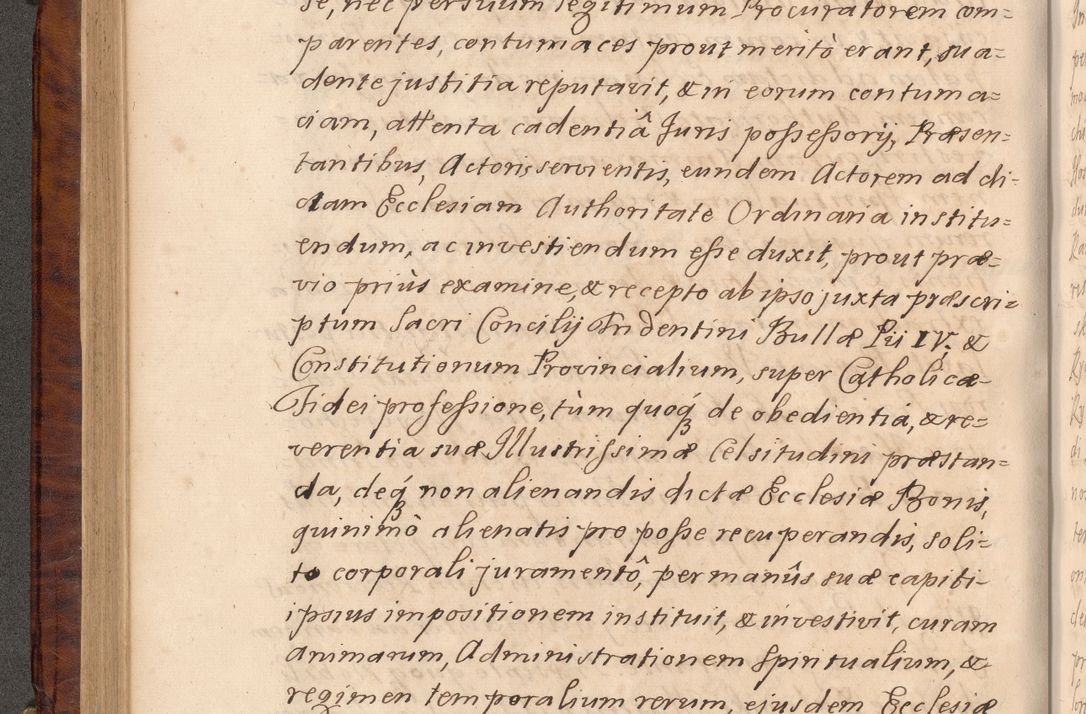 se, nec per suum legitimum Procuratorem com=
parentes, contumaces prout meritò erant, sua=
dente justitia reputavit, & in eorum contuma=
ciam, attenta cadentiâ Juris possessorij, Præsen=
tantibus, Actoris servientis, eundem Actorem ad di=
ctam Ecclesiam Authoritate Ordinaria institu=
endum, ac investiendum esse duxit, prout præ=
vio priùs examine, & recepto ab ipso juxta præscri=
ptum Sacri Concilij Tridentini Bullæ Pii IV. &
Constitutionum Provincialium, super Catholicæ
Fidei professione, tùm quoq; de obedientia, & re=
verentia suæ Illustrissimæ Celsitudini præstan=
da, deq; non alienandis dictæ Ecclesiæ Bonis,
quinimò alienatis pro posse recuperandis, soli=
to corporali juramentô, per manûs suæ capiti
ipsius impositionem instituit, & investivit, curam
animarum, Administrationem Spiritualium, &
regimen temporalium rerum, ejusdem Ecclesiæ